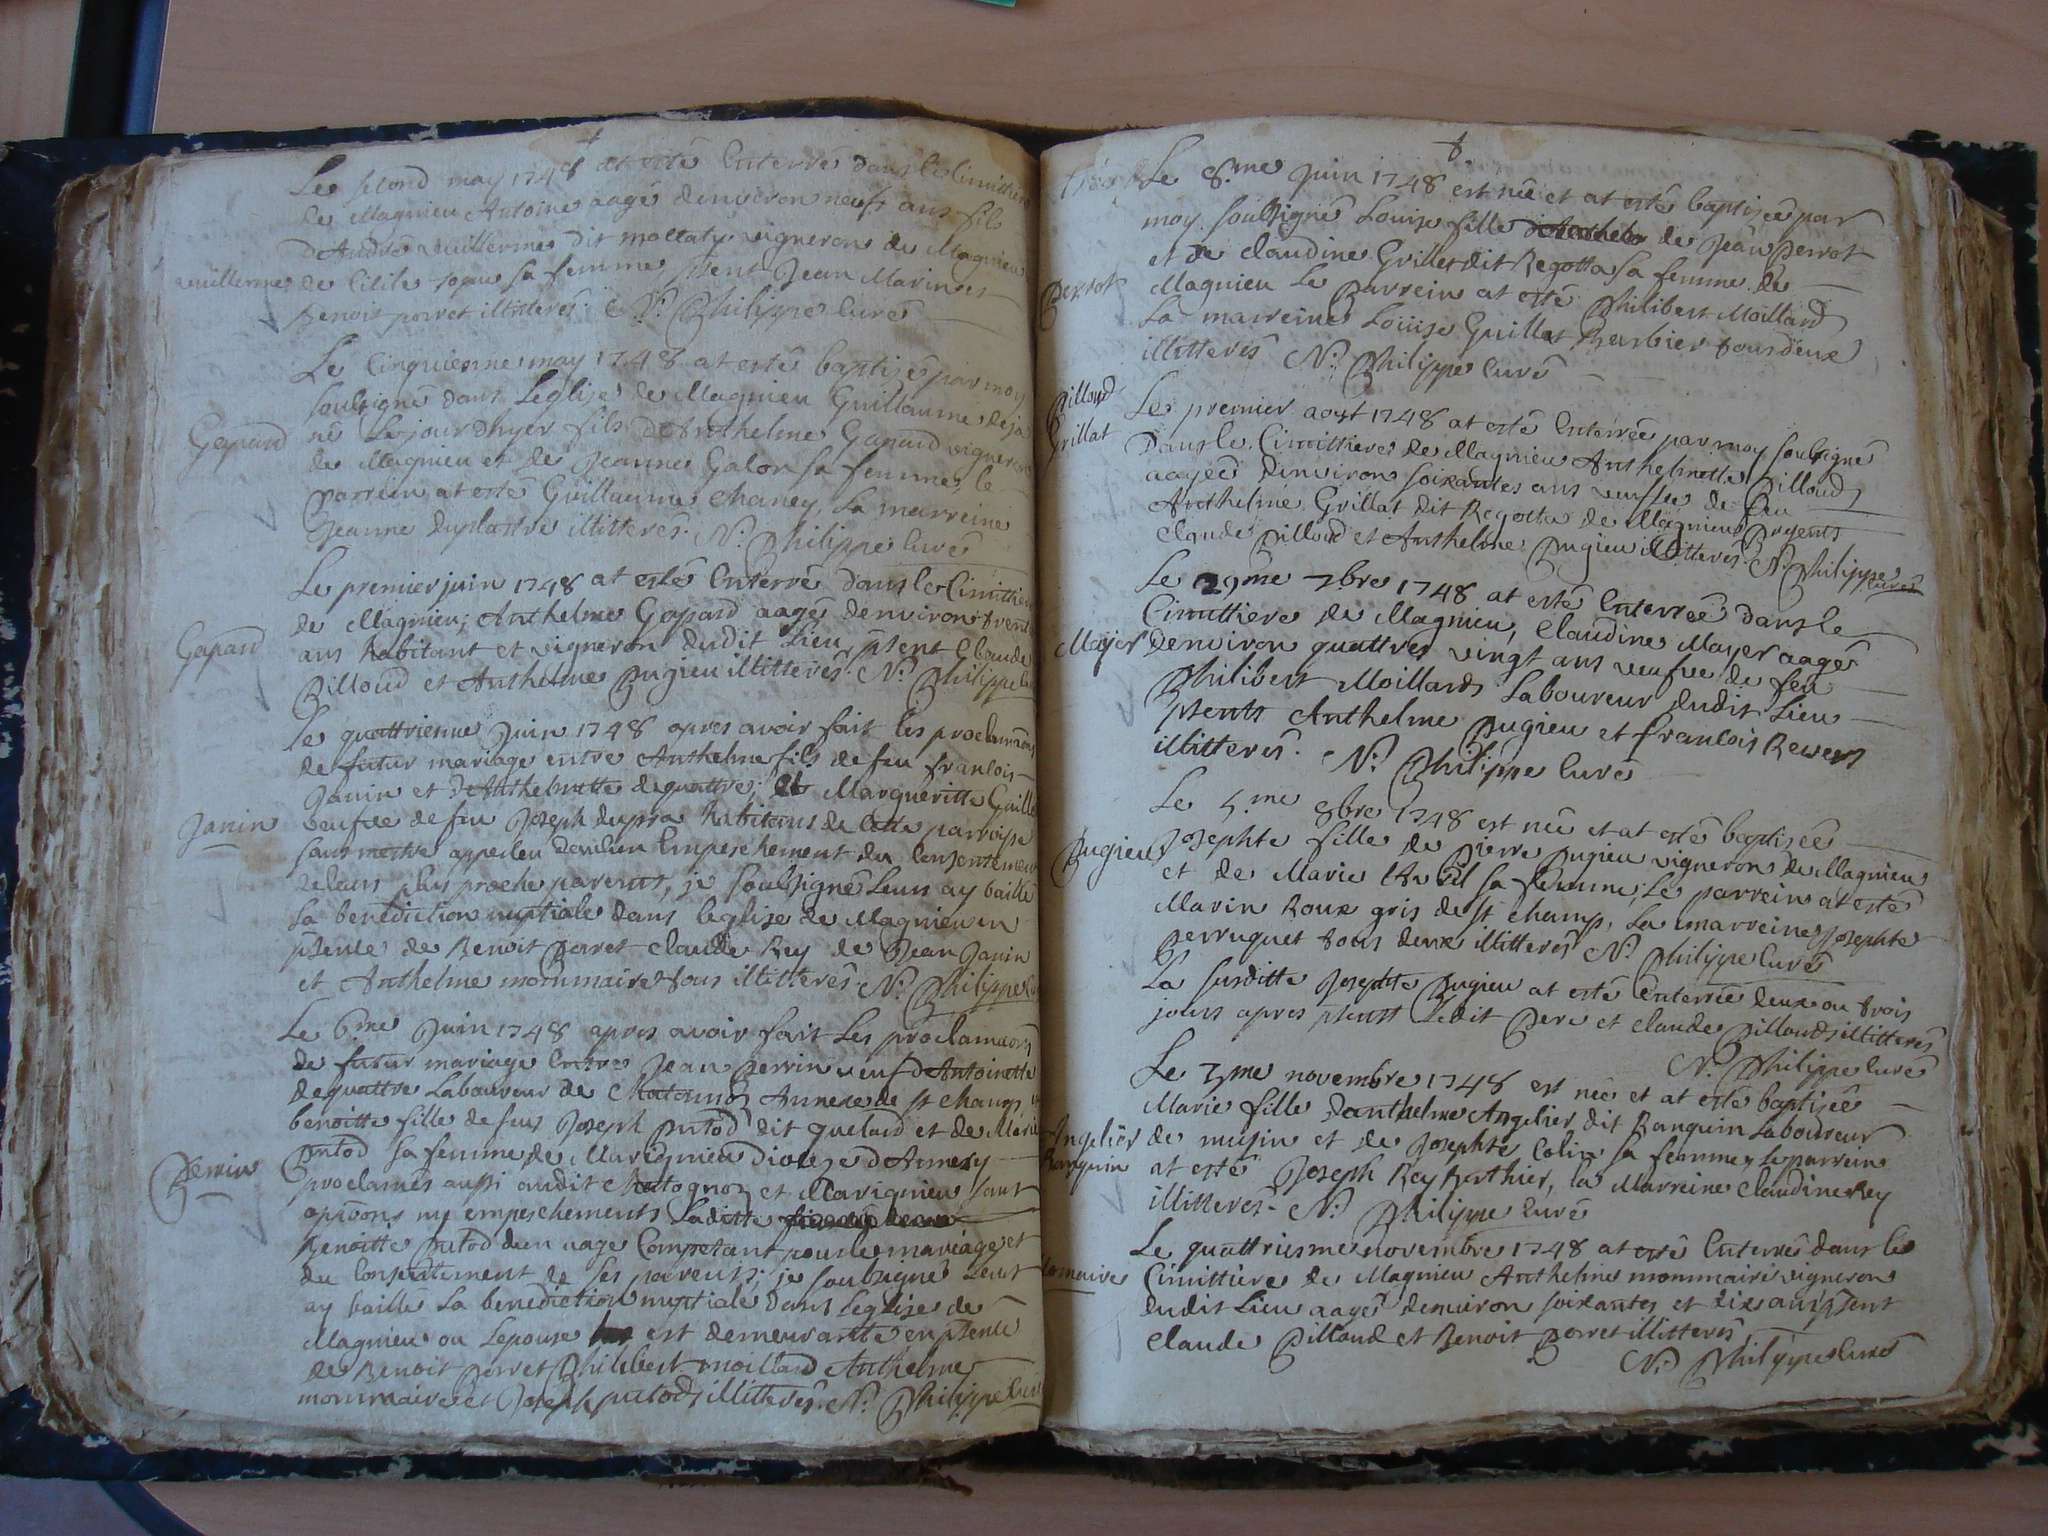 Le second may 1748 at esté Enterré dans le Cimittiere
de Magnieu Antoine aagé denviron neuf ans fils
d'André vuillerme dit mollaty vigneron de Magnieu
vuillerme
de Cicile sa femme, psent Jean Marin et
Benoit porret illitteres. N. Philippe Curé
Le Cinquiesme may 1748 at esté baptisé par moy
soubsigné dans Leglise de Magnieu Guillaume deja
né Le jour dhyer fils d'Anthelme Gapard vigneron
Gapard
de Magnieu et de Jeanne Galon sa femme, le
parrein at esté Guillaume Chaney, La marreine
Jeanne duplastre illitteres. N. Philippe Curé
Le premier juin 1748 at esté Enterré dans le Cimittiere
de Magnieu, Anthelme Gapard aagé denviron trente
Gapard
ans habitant et vigneron dudit Lieu, psent Claude
Pilloud et Anthelme Pugieu illitteres. N. Philippe
Le quattrieme Juin 1748 apres avoir fait les proclamaons
de futur mariage entre Anthelme fils de feu francois
Janin et d'Anthelmette dequattre, et Margueritte
Janin
veufve de feu Joseph dupra habitans de Cette parroisse
sans mettre appercu daucun Empeschement du Consentement
de leurs plus proche parents, je soubsigné Leurs ay baillé
La benediction nuptiale dans leglise de Magnieu en
psence de Benoit Porret Claude Rey de Jean Janin
et Anthelme mommaire tous illitteres N. Philippe
Le 6.me Juin 1748 apres avoir fait Les proclamaons
de futur mariage Entre Jean Perrin veuf d'Antoinette
dequattre Laboureur de Chatonnoz Annexe de st champ
benoitte fille de feus Joseph putod dit quelard et de Marie
Perrin
putod sa femme de Marignieu Dioceze d'Annecy
proclamés aussi audit Chatognoz et Marignieu sans
oppoons ny empeschements Laditte
Benoitte putod dun aage Competant pour le mariage et
du Consentement de ses parents, je soubsigné Leurs
ay baillé La benediction nuptiale dans Leglise de
Magnieu ou Lepouse est demeurante en psence
de Benoit Porret Philibert moillard Anthelme
mommaire et Joseph putod, illitteres. N. Philippe Curé
Le 8.me Juin 1748 est née et at esté baptisée par
moy soubsigné Louise fille de Jean Perrot
et de Claudine Grillet dit Regotta sa femme de
Perrot
Magnieu Le Parrein at esté Philibert Moillard
La marreine Louise Guillat Barbier tous deux
illitteres N. Philippe Curé
Pilloud
Grillat
Le premier aoust 1748 at esté Enterrée par moy soubsigné
Dans le Cimittiere de Magnieu Anthelmette Pilloud
aagée denviron soixantes ans veufve de feu
Anthelme Grillat dit Regotta de Magnieu Presents
Claude Pilloud et Anthelme Pugieu illitteres. N. Philippe
Curé
Le 29me 7bre 1748 at esté Enterreé dans le
Cimittiere de Magnieu, Claudine Mayer aageé
Mayer
denviron quattres vingt ans veufve de feu
Philibert Moillard Laboureur dudit Lieu
psents Anthelme Pugieu et francois
illitteres. N. Philippe Curé
Le 5.me 8bre 1748 est née et at esté baptisée
Josephte fille de Pierre Pugieu vigneron de Magnieu
Pugieu
et de Marie sa femme, Le parrein at esté
Marin Roux gris de st champ, La marreine Josephte
perruquet tous deux illitteres N. Philippe Curé
La susditte Josephte Pugieu at esté Enterrée deux ou trois
jours apres psents Ledit Pere et Claude Pilloud, illitteres
N. Philippe Curé
Le 3me novembre 1748 est née et at esté baptisée
Marie fille d'anthelme Angelier dit Ranguin Laboureur
Angelier
Ranguin
de musin et de Josephte Colin sa femme, le parrein
at esté Joseph Rey berthier, la Marreine Claudine Rey
illitteres. N. Philippe Curé
Le quattriesme novembre 1748 at esté Enterré dans le
Cimittiere de Magnieu Anthelme mommaire vigneron
dudit Lieu aagé denviron soixantes et dix ans, psent
Claude Pilloud et Benoit Porret illitteres
N. Philippe Curé